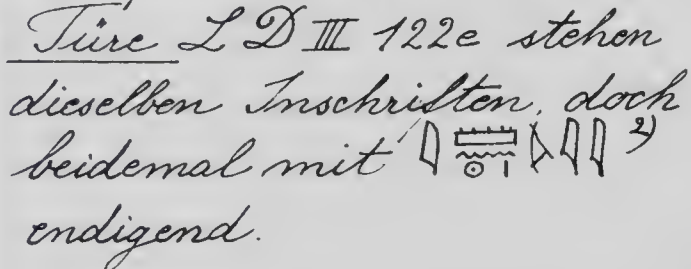 Türe L D III 122e stehen
dieselben Inschriften, doch
beidemal mit 𓇋𓏠𓈖𓇳𓏤𓌸𓇋𓇋 2)
endigend.